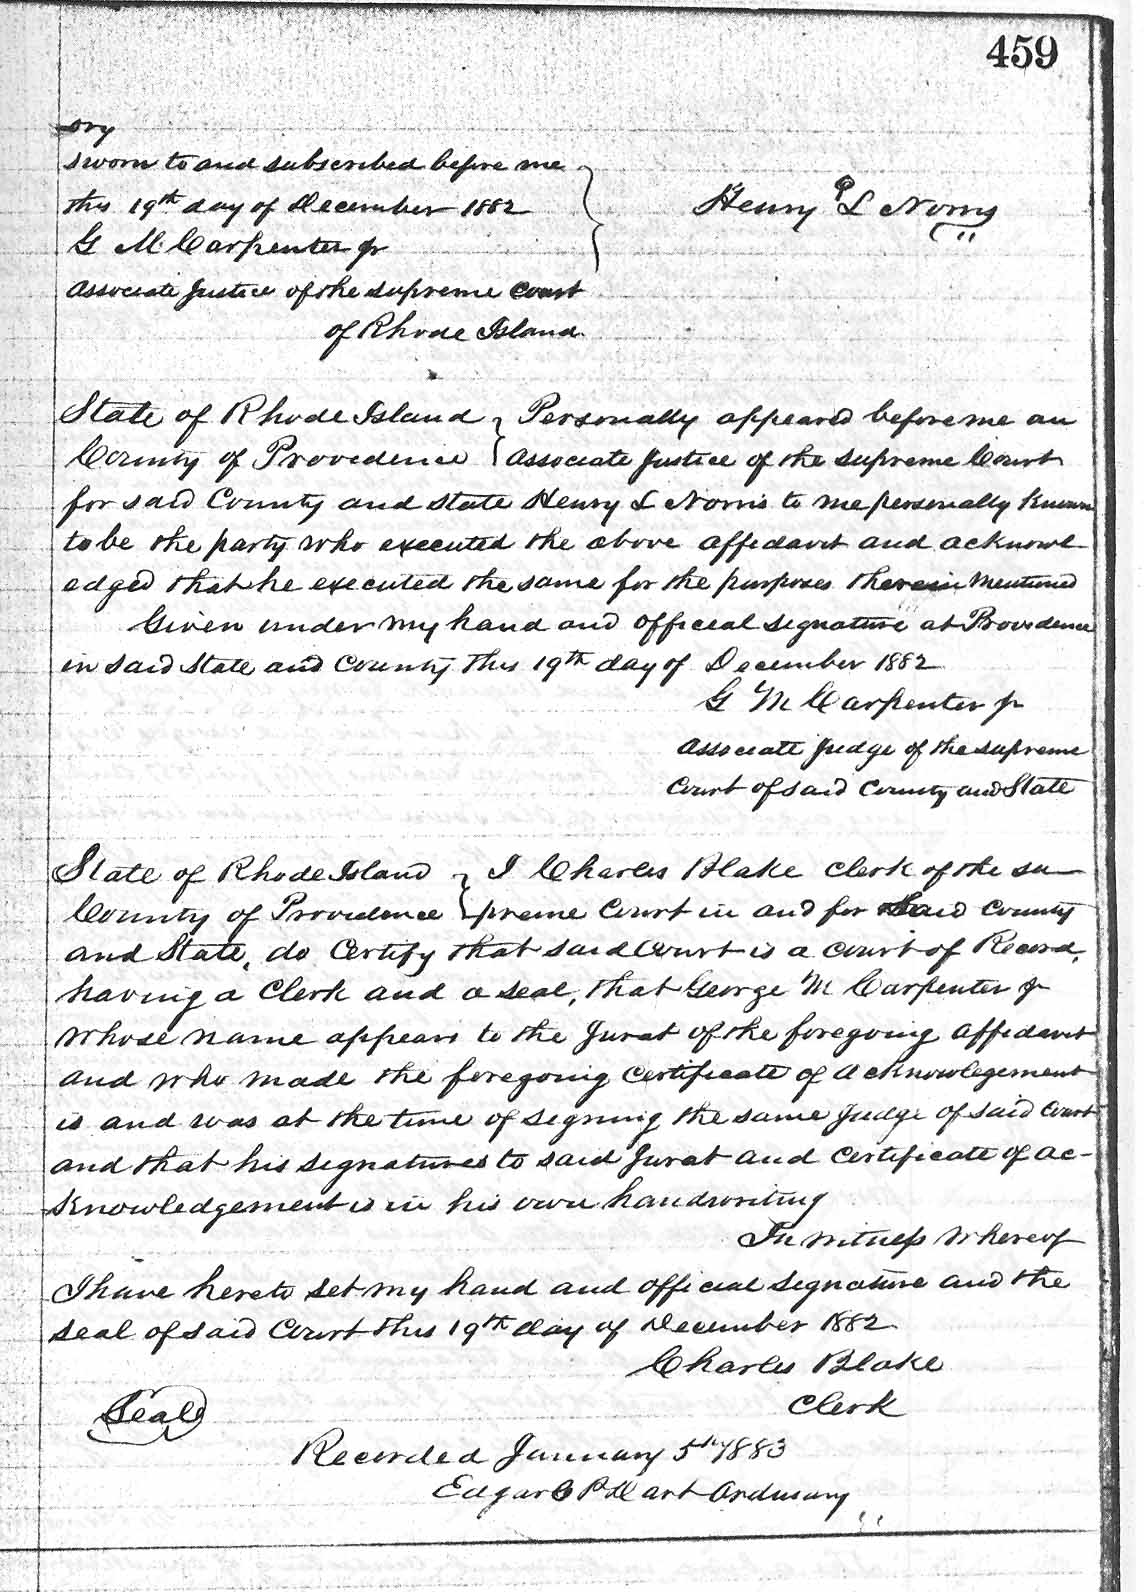 459
ory
sworn to and subscribed before me
this 19th day of December 1882
G M Carpenter Jr
Associate Justice of the supreme court
of Rhode Island.
Henry L Norris
State of Rhode Island } Personally appeared before me an
County of Providence } Associate Justice of the supreme Court
for said County and state Henry L Norris to me personally known
to be the party who executed the above affidavit and acknowl
edged that he executed the same for the purposes therein mentioned
Given under my hand and official signature at Providence
in said State and County this 19th day of December 1882
G M Carpenter Jr
Associate Judge of the supreme
Court of said County and State
State of Rhode Island } I Charles Blake Clerk of the su
County of Providence } preme Court in and for said County
and State, do Certify that said Court is a Court of Record,
having a Clerk and a seal, that George M Carpenter Jr
whose name appears to the Jurat of the foregoing affidavit
and who made the foregoing certificate of acknowlegement
is and was at the time of signing the same Judge of said Court
and that his signatures to said Jurat and certificate of ac-
knowledgement is in his own handwriting
In witness whereof
I have hereto set my hand and official signature and the
seal of said Court this 19th day of December 1882
Charles Blake
Clerk
Seal
Recorded January 5th 1883
Edgar Dart